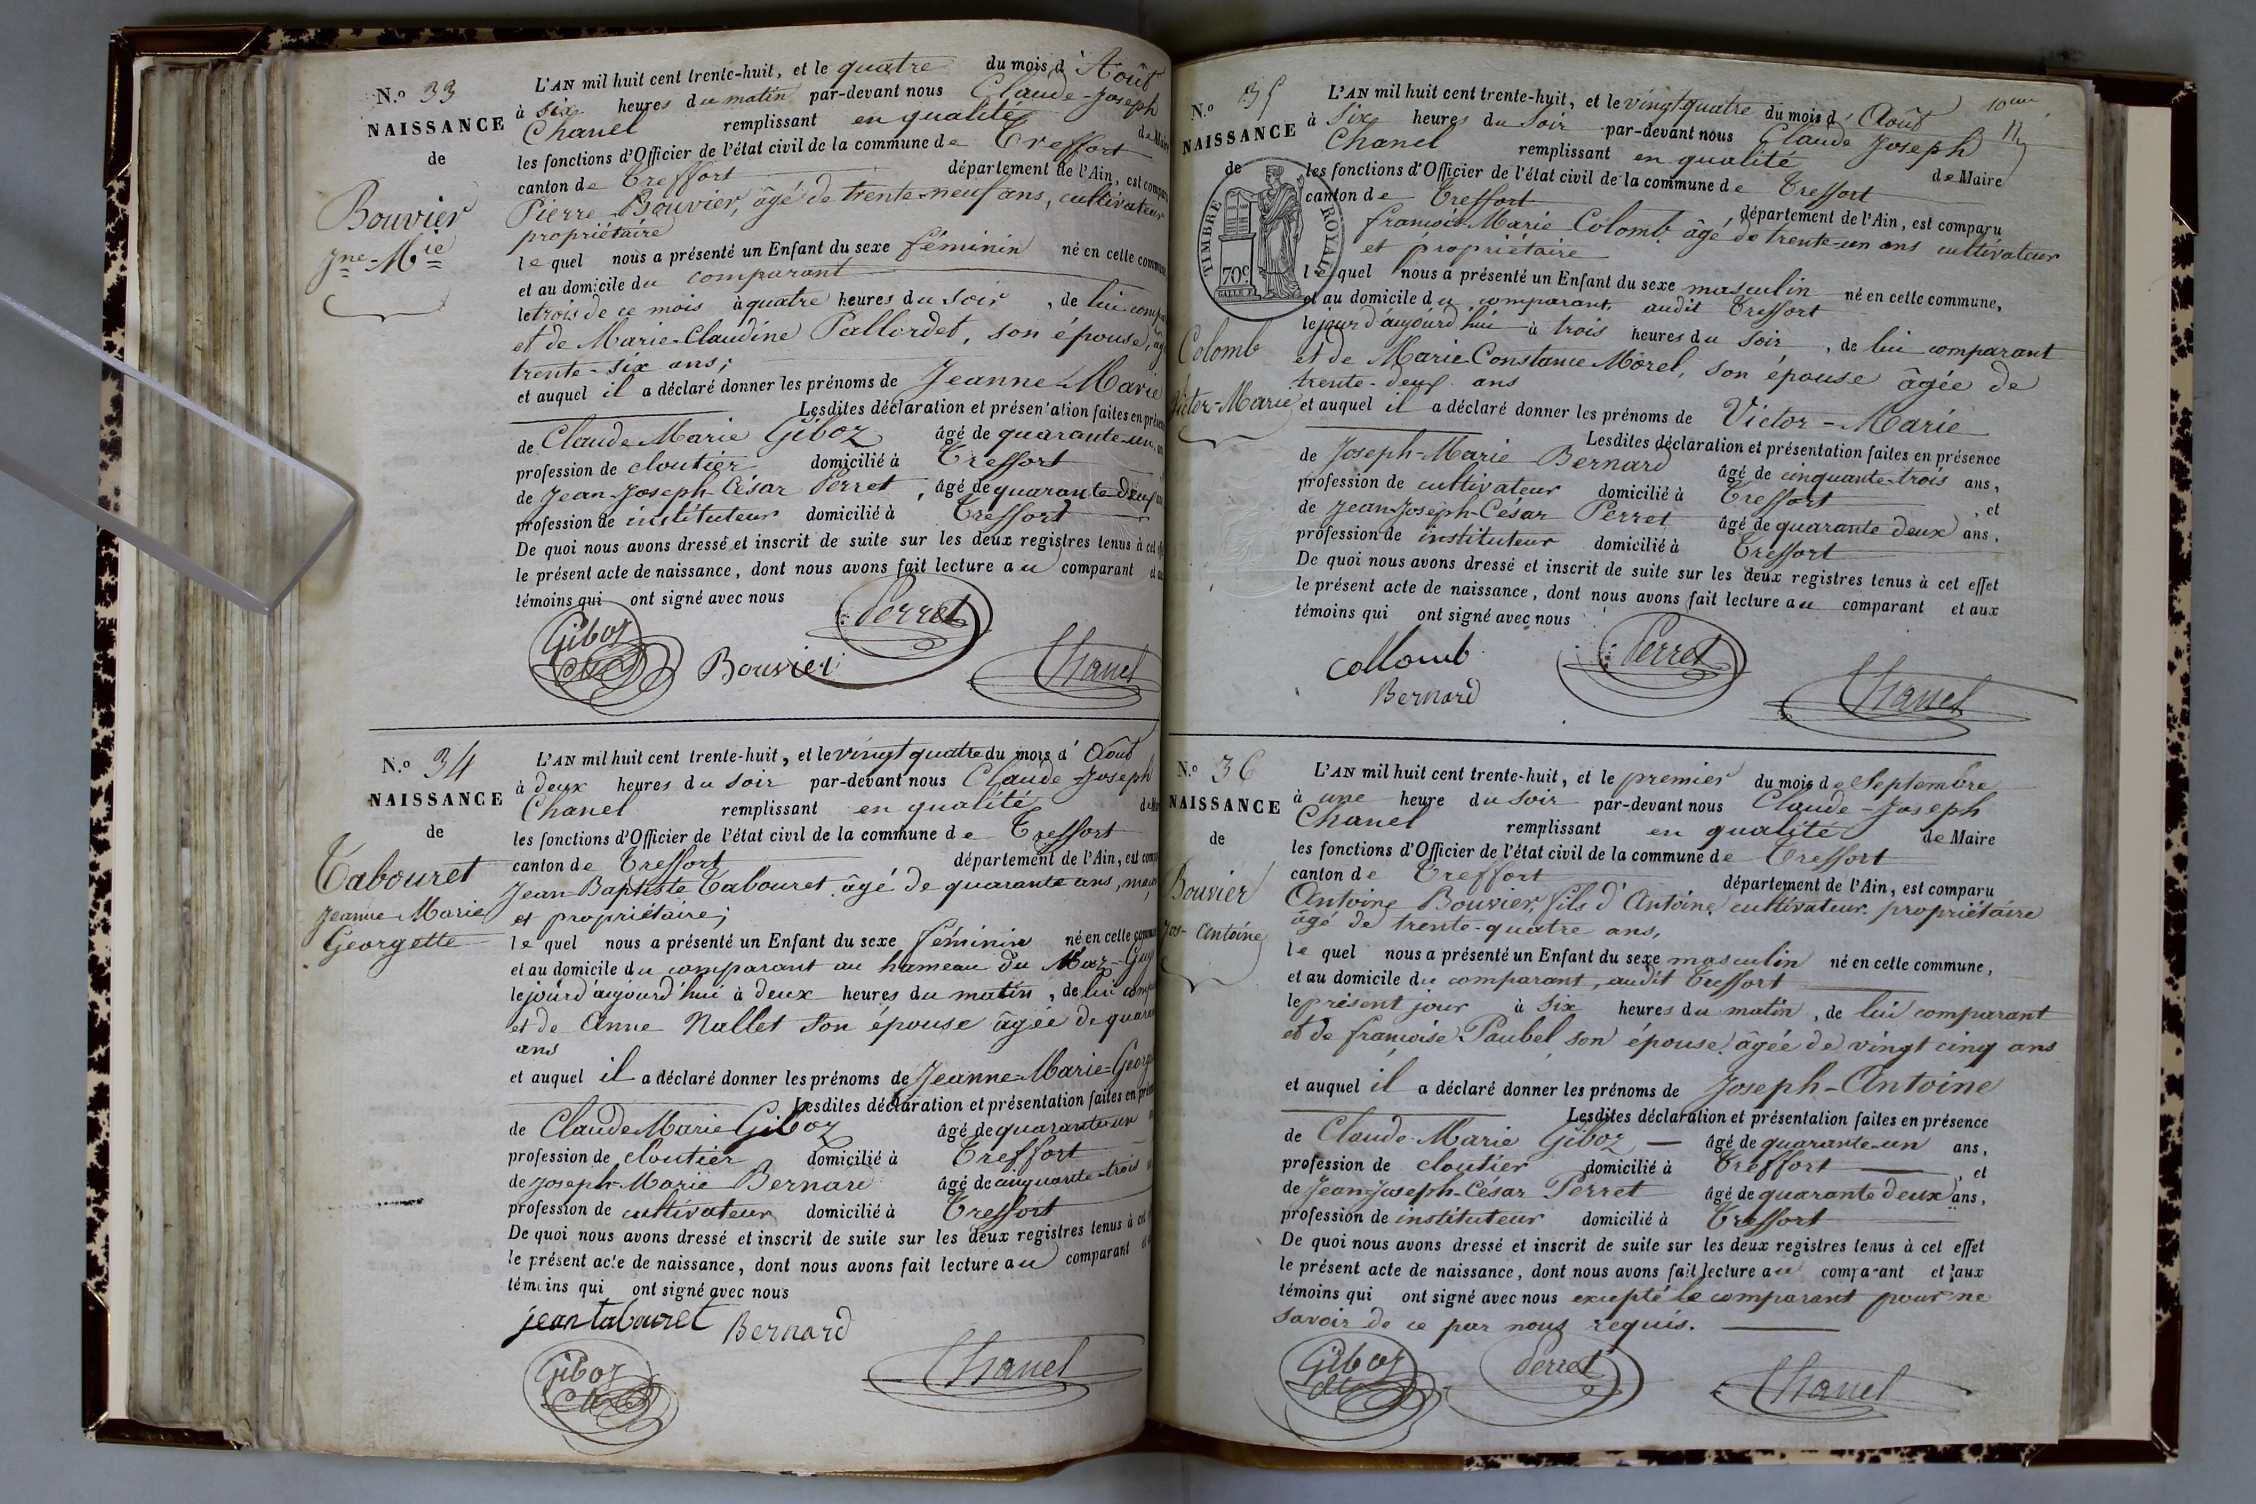 N.o 33
NAISSANCE
de
Bouvier
Jne-Mie
L'AN mil huit cent trente-huit, et le quatre du mois d'Août
à six heures du matin par-devant nous Claude-Joseph
Chanel remplissant en qualité de Maire
les fonctions d'Officier de l'état civil de la commune de Treffort
canton de Treffort département de l'Ain, est comparu
Pierre Bouvier, âgé de trente-neuf ans, cultivateur
propriétaire
lequel nous a présenté un Enfant du sexe féminin né en celle commune
et au domicile du comparant
le trois de ce mois à quatre heures du soir, de lui comp
et de Marie-Claudine Pallordet, son épouse, âg
trente-six ans;
et auquel il a déclaré donner les prénoms de Jeanne-Marie
Lesdites déclaration et présentation faites en prés
de Claude Marie Giboz âgé de quarante-un
profession de cloutier domicilié à Treffort
de Jean-Joseph-César Perret, âgé de quarante-deux
profession de instituteur domicilié à Treffort
De quoi nous avons dressé et inscrit de suite sur les deux registres tenus à cet
le présent acte de naissance, dont nous avons fait lecture au comparant et
témoins qui ont signé avec nous
Giboz Perret
Bouvier Chanel
N.o 34
NAISSANCE
de
Tabouret
Jeanne Marie
Georgette
L'AN mil huit cent trente-huit, et le vingt quatre du mois d'Août
à deux heures du soir par-devant nous Claude-Joseph
Chanel remplissant en qualité de Mai
les fonctions d'Officier de l'état civil de la commune de Treffort
canton de Treffort département de l'Ain, est com
Jean-Baptiste Tabouret âgé de quarante ans,
et propriétaire;
lequel nous a présenté un Enfant du sexe féminin né en celle commu
et au domicile du comparant au hameau du
le jour d'aujourd'hui à deux heures du matin, de lui comp
et de Anne Nallet son épouse âgée de quaran
ans
et auquel il a déclaré donner les prénoms de Jeanne-Marie-Georg
Lesdites déclaration et présentation faites en prés
de Claude Marie Giboz âgé de quarante-un
profession de cloutier domicilié à Treffort
de Joseph-Marie Bernard âgé de cinquante-trois
profession de cultivateur domicilié à Treffort
De quoi nous avons dressé et inscrit de suite sur les deux registres tenus à cet
le présent acte de naissance, dont nous avons fait lecture au comparant et
témoins qui ont signé avec nous
jean tabouret Bernard
Giboz Chanel
N.o 35
NAISSANCE
de
TIMBRE ROYAL
70c
Colomb
Victor-Marie
10me
L'AN mil huit cent trente-huit, et le vingt quatre du mois d'Août
à Six heures du Soir par-devant nous Claude Joseph
Chanel remplissant en qualité de Maire
les fonctions d'Officier de l'état civil de la commune de Treffort
canton de Treffort, département de l'Ain, est comparu
françois-Marie Colomb âgé de trente-un ans cultivateur
et propriétaire
lequel nous a présenté un Enfant du sexe masculin né en celle commune,
et au domicile du comparant, audit Treffort
le jour d'aujourd'hui à trois heures du Soir, de lui comparant
et de Marie Constance Morel, son épouse âgée de
trente-deux ans
et auquel il a déclaré donner les prénoms de Victor-Marie
Lesdites déclaration et présentation faites en présence
de Joseph-Marie Bernard âgé de cinquante-trois ans,
profession de cultivateur domicilié à Treffort, et
de Jean-Joseph-César Perret âgé de quarante deux ans,
profession de instituteur domicilié à Treffort
De quoi nous avons dressé et inscrit de suite sur les deux registres tenus à cet effet
le présent acte de naissance, dont nous avons fait lecture au comparant et aux
témoins qui ont signé avec nous
collomb Perret
Bernard Chanel
N.o 36
NAISSANCE
de
Bouvier
Jos-Antoine
L'AN mil huit cent trente-huit, et le premier du mois de Septembre
à une heure du soir par-devant nous Claude-Joseph
Chanel remplissant en qualité de Maire
les fonctions d'Officier de l'état civil de la commune de Treffort
canton de Treffort département de l'Ain, est comparu
Antoine Bouvier, fils d'Antoine, cultivateur propriétaire
âgé de trente-quatre ans,
lequel nous a présenté un Enfant du sexe masculin né en celle commune,
et au domicile du comparant, audit Treffort
le présent jour à Six heures du matin, de lui comparant
et de françoise Paubel son épouse âgée de vingt cinq ans
et auquel il a déclaré donner les prénoms de Joseph-Antoine
Lesdites déclaration et présentation faites en présence
de Claude-Marie Giboz — âgé de quarante-un ans,
profession de cloutier domicilié à Treffort, et
de Jean-Joseph-César Perret âgé de quarante deux ans,
profession de instituteur domicilié à Treffort
De quoi nous avons dressé et inscrit de suite sur les deux registres tenus à cet effet
le présent acte de naissance, dont nous avons fait lecture au comparant et aux
témoins qui ont signé avec nous excepté le comparant pour ne
Savoir de ce par nous requis.
Giboz Perret Chanel